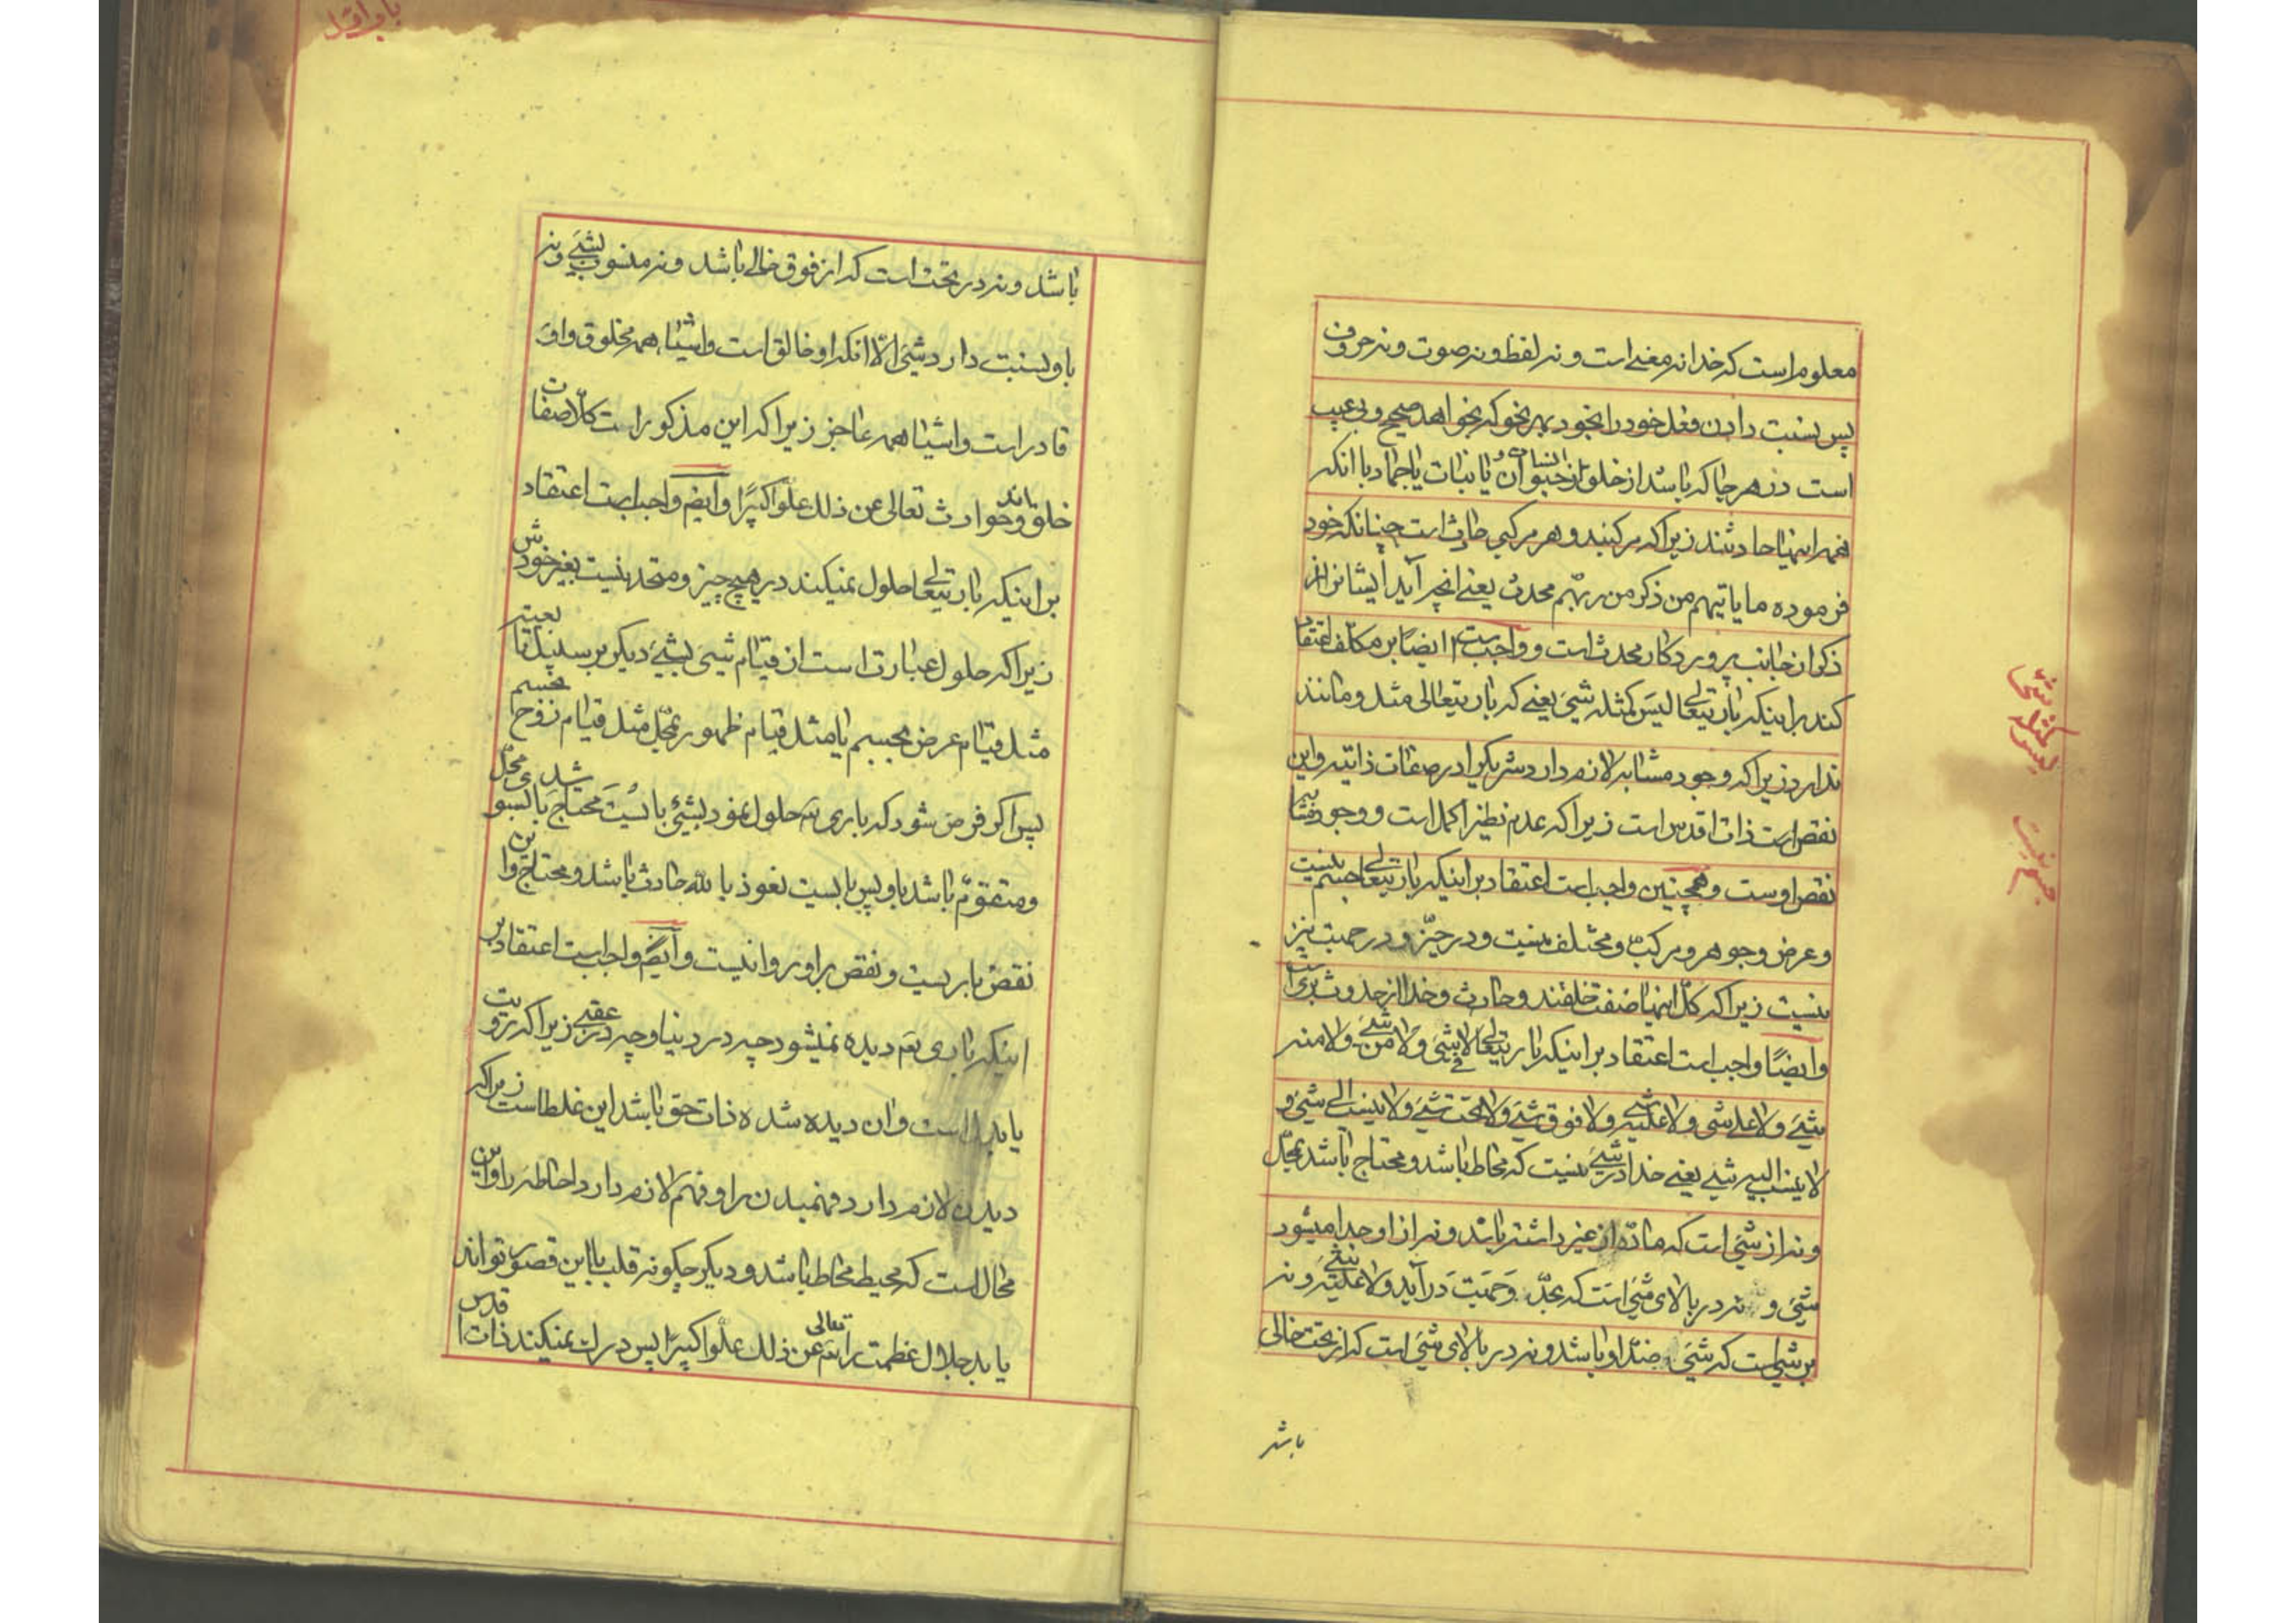 معلوم است که خدا نه معنی است و نه لفظ و نه صوت و نه حروف
پس نسبت دادن فعل خود را بخود بهر نحو که بخواهد صحیح و بی عیب
است در هر جا که باشد از خلق از حیوان و انسان یا نبات یا جماد با انکه
همه اینها حادثند زیرا که مرکبند و هر مرکبی حادث است چنانکه خود
فرموده ما یاتیهم من ذکر من ربهم محدث یعنی انچه آید ایشانرا از
ذکر از جانب پروردکار محدث است و واجب است ایضًا بر مکلف اعتقاد
کند بر اینکه باریتعالی لیس کمثله شیئ یعنی که باریتعالی مثل و مانند
ندارد زیرا که وجود مشابه لازم دارد شریکرا در صفات ذاتیه و این
نقص است ذات اقدس است زیرا که عدم نظیر اکمل است و وجود مشابه
نقص اوست و همچنین واجب است اعتقاد بر اینکه باریتعالی جسم نیست
و عرض و جوهر و مرکب و مختلف نیست و در حیّز و در جهت نیز
نیست زیرا که کل اینها صفت خلقند و حادث و خدا از حدوث بری است
و ایضًا واجب است اعتقاد بر اینکه باریتعالی لا فی شیئ و لا من شیئ و لا منه
شیئ و لا علی شیئ و لا علیه شیئ و لا فوق شیئ و لا تحت شیئ و لا ینسب الی شیئ و
لا ینسب الیه شیئ یعنی خدا در شیئ نیست که محاط باشد و محتاج باشد بمحل
و نه از شیئ است که مادّه از غیر داشته باشد و نه از او جدا میشود
شیئ و نه در بالای شیئ است که بحدّ و جهت در آید و لا علیه شیئ و نه
بر شیئ است که شیئ ضدّ او باشد و نه در بالای شیئ است که از تحت خالی
باشد
لیس کمثله شیئ
باشد و نه در تحت است که از فوق خالی باشد و نه منسوب بشیئ و نه
باو نسبت دارد شیئ الّا انکه او خالق است و اشیا همه مخلوق و او
قادر است و اشیا همه عاجز زیرا که این مذکور است کلًا صفات
خلق و حوادثاند تعالی عن ذلک علوًا کبیرًا و ایضًا واجب است اعتقاد
بر اینکه باریتعالی حلول نمیکند در هیچ چیز و متحد نیست بغیر خودش
زیرا که حلول عبارت است از قیام شیئ بشیئ دیکر بر سبیل تبعیت
مثل قیام عرض بجسم یا مثل قیام ظهور بمحل مثل قیام روح بجسم
پس اکر فرض شود که باری تع حلول نمود بشیئ بایست محتاج باشد بسوی محل
و متقوّم باشد باو پس بایست نعوذ بالله حادث باشد و محتاج و این
نقص باریست و نقص بر او روا نیست و ایضًا واجب است اعتقاد بر
اینکه باری تع دیده نمیشود چه در دنیا و چه در عقبی زیرا که رؤیت
یا بدل است و ان دیده شده ذات حق باشد این غلط است زیرا که
دیدن لازم دارد فهمیدن را و فهم لازم دارد احاطه را و این
محال است که محیط محاط باشد و دیکر چکونه قلب با این قصور تواند
یابد جلال عظمت را تعالی عن ذلک علوًا کبیرًا پس درک نمیکند ذات اقدس